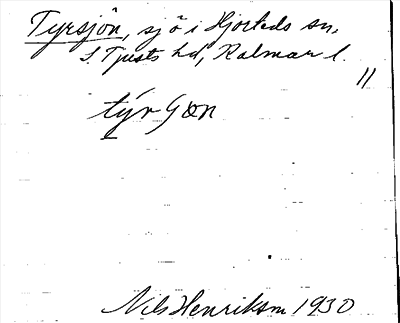 Tyrsjön, sjö i Hjorteds sn.
S. Tjusts hd, Kalmar l.
11
Nils Henrikson 1930